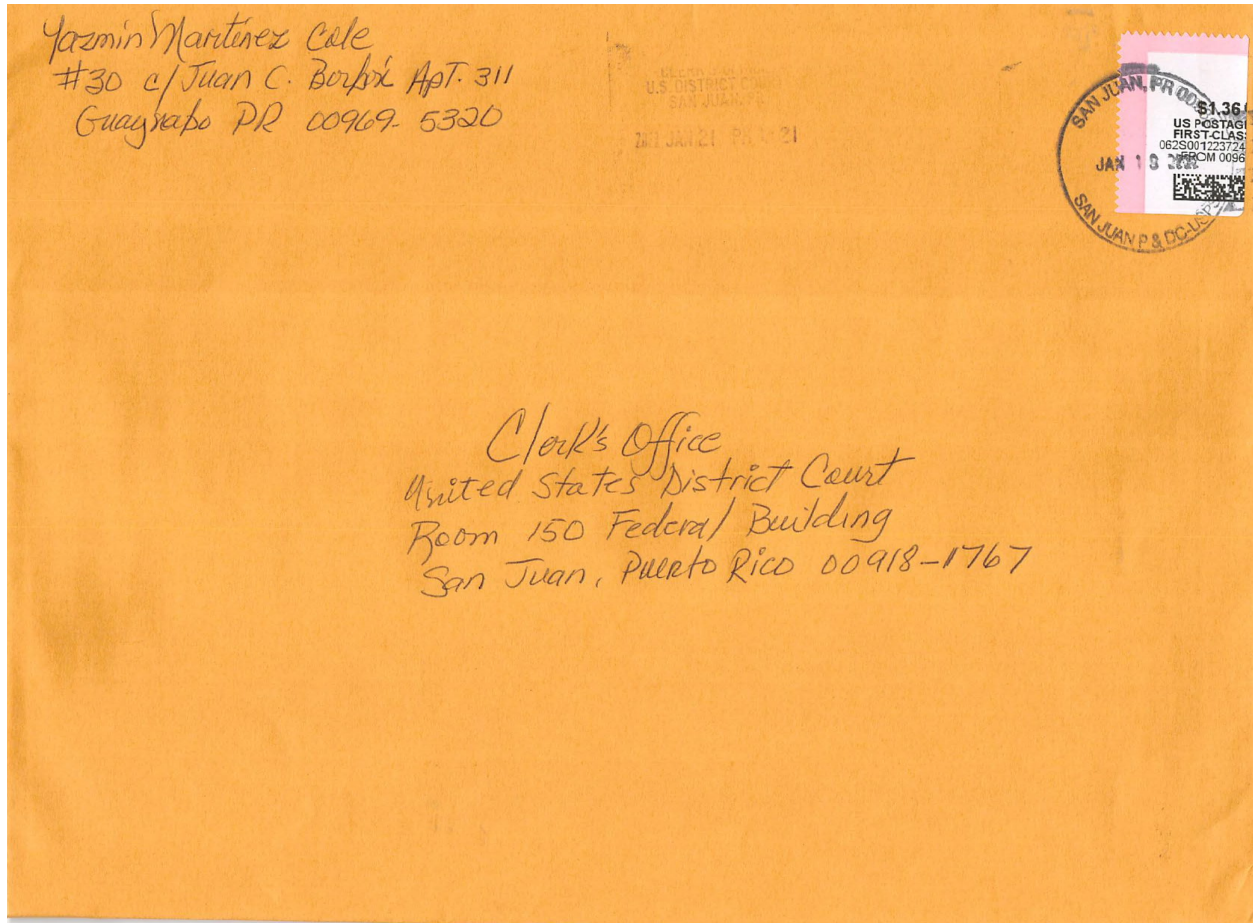 Yazmin Martinez Cole
#30 c/ Juan C. Borbón Apt. 311
Guaynabo PR 00969-5320
U.S. DISTRICT
SAN JUAN, PR
JAN 21 PM 21
SAN JUAN, PR
JAN 18
SAN JUAN P & DC-USPS
$1.36
US POSTAG
FIRST-CLAS
062S001223724
FROM 0096
Clerk's Office
United States District Court
Room 150 Federal Building
San Juan, Puerto Rico 00918-1767